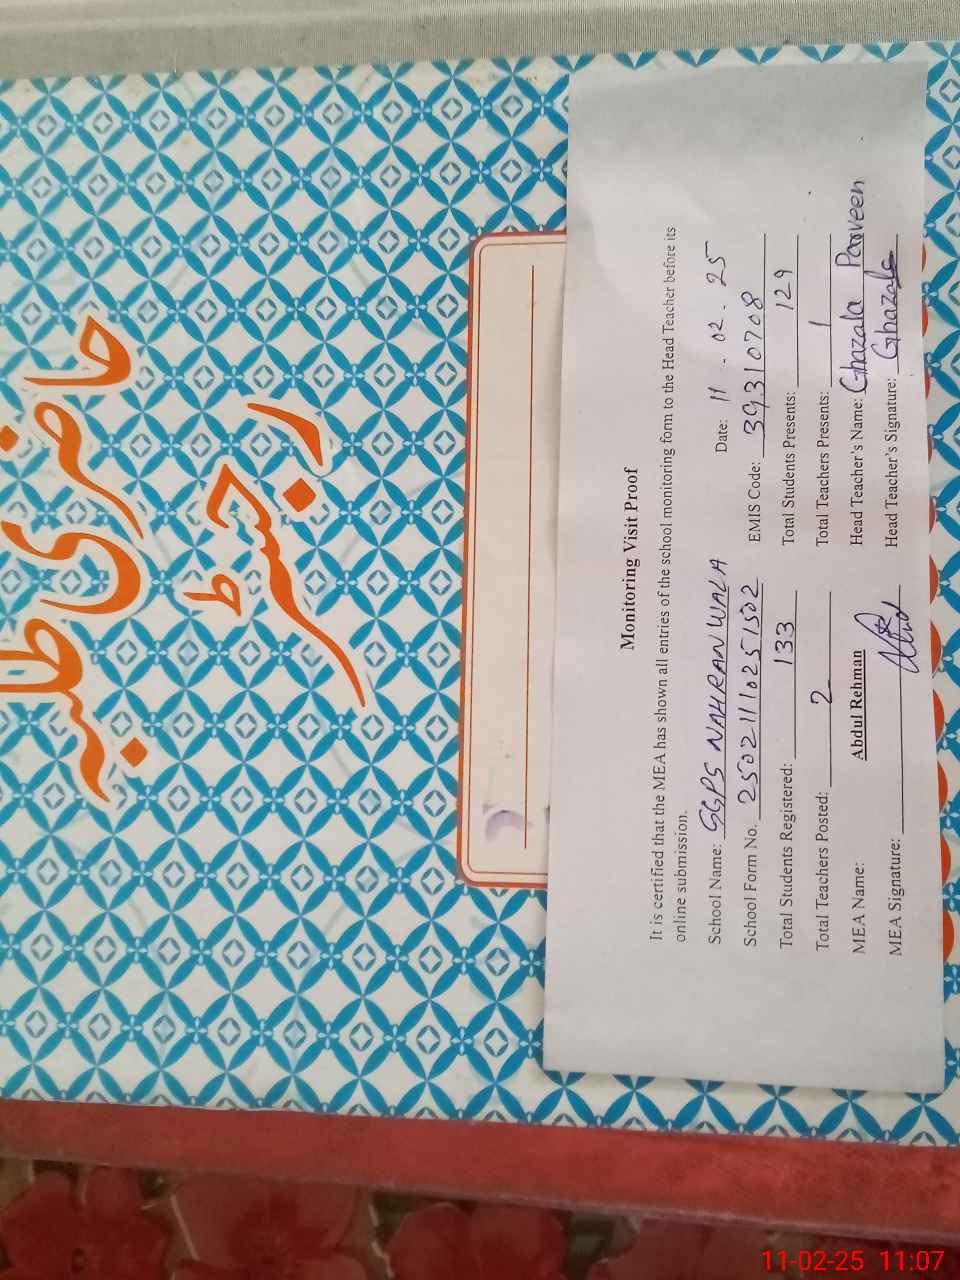 حاضری طلبہ
رجسٹر
Monitoring Visit Proof
It is certified that the MEA has shown all entries of the school monitoring form to the Head Teacher before its
online submission.
School Name: SGPS NAHRANWALA Date: 11 . 02 . 25
School Form No. 250211110251502 EMIS Code: 39310708
Total Students Registered: 133 Total Students Presents: 129
Total Teachers Posted: 2 Total Teachers Presents: 1
MEA Name: Abdul Rehman Head Teacher's Name: Ghazala Parveen
MEA Signature: Head Teacher's Signature: Ghazala
11-02-25 11:07